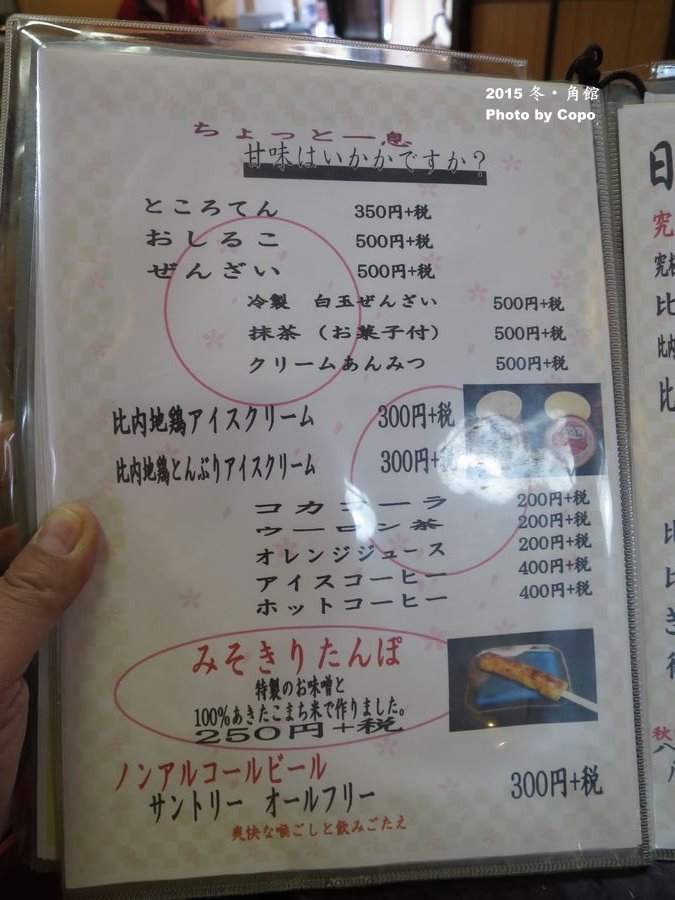 2015 冬・角館
Photo by Copo
ちょっと一息
甘味はいかかですか?
ところてん 350円+税
おしるこ 500円+税
ぜんざい 500円+税
冷製 白玉ぜんざい 500円+税
抹茶(お菓子付) 500円+税
クリームあんみつ 500円+税
比内地鶏アイスクリーム 300円+税
比内地鶏とんぶりアイスクリーム 300円+税
コカコーラ 200円+税
ウーロン茶 200円+税
オレンジジュース 200円+税
アイスコーヒー 400円+税
ホットコーヒー 400円+税
みそきりたんぽ
特製のお味噌と
100%あきたこまち米で作りました。
250円+税
ノンアルコールビール
サントリー オールフリー 300円+税
爽快な喉ごしと飲みごたえ